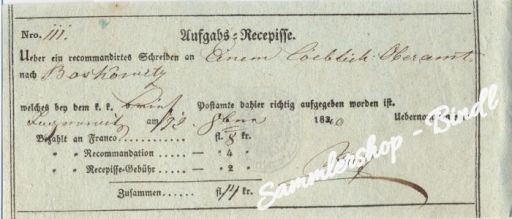 Nro. 111. Aufgabs-Recepisse.
Ueber ein recommandirtes Schreiben an Einem Löblich. Oberamt
nach Boskowitz
welches bey dem k. k. Brief Postamte dahier richtig aufgegeben worden ist.
am 8ber 1840 Uebernommen
Bezahlt an Franco fl. 8 kr.
„ Recommandation — „ 4 „
„ Recepisse-Gebühr — „ 2 „
Zusammen fl. 14 kr.
Sammlershop - Bindl